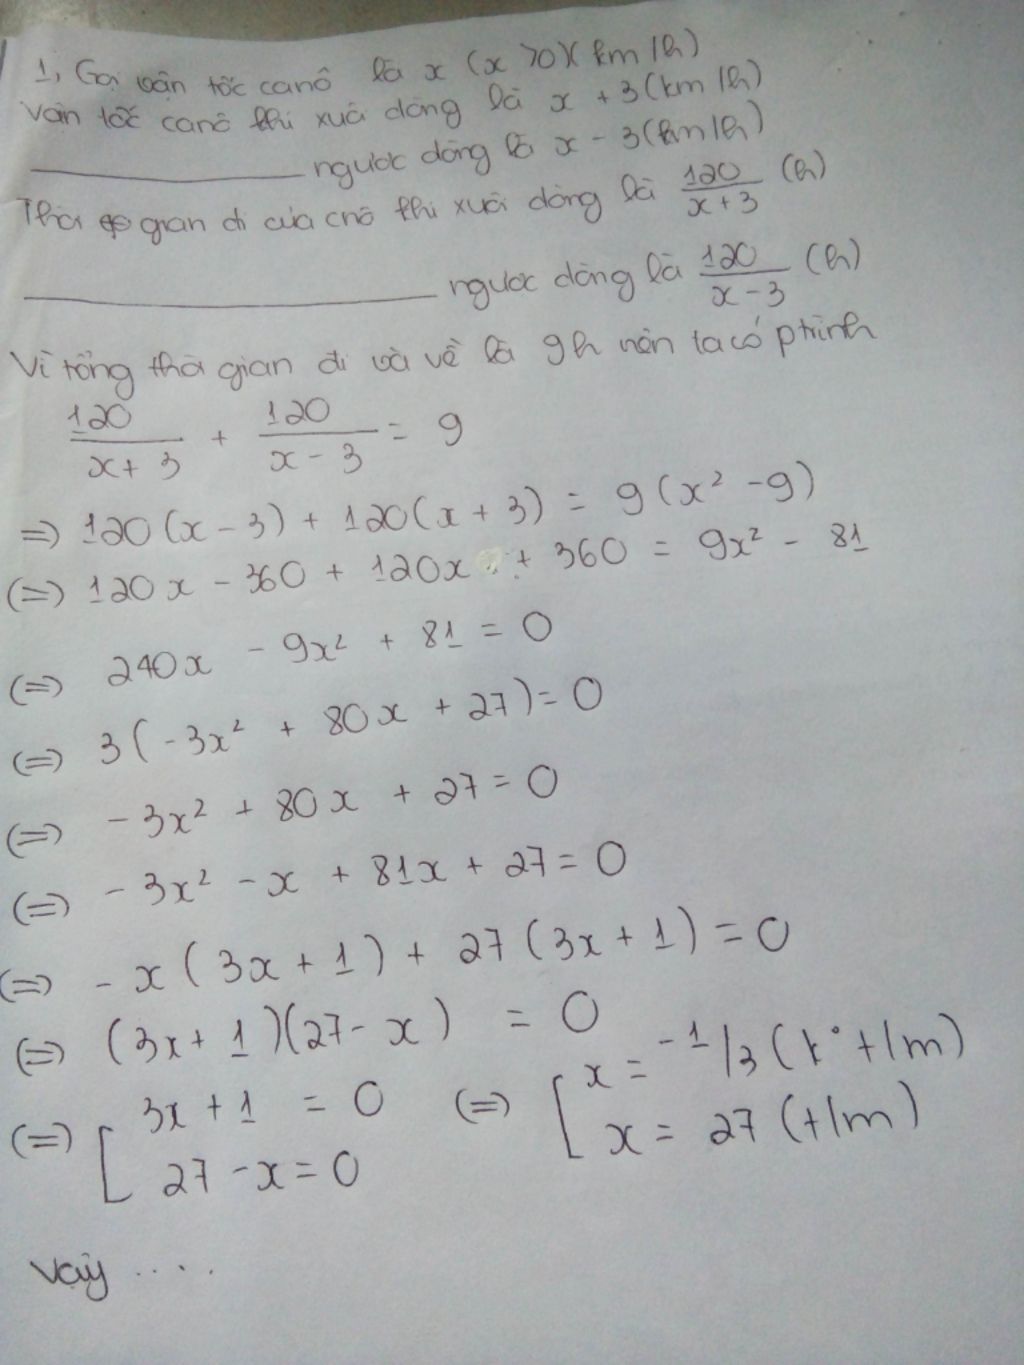 1, Gọi vận tốc canô là x (x >0)(km/h)
Vận tốc canô khi xuôi dòng là x + 3(km/h)
ngược dòng là x - 3(km/h)
Thời gian đi của cnô khi xuôi dòng là 120/(x+3) (h)
ngược dòng là 120/(x-3) (h)
Vì tổng thời gian đi và về là 9h nên ta có ptrình
120/(x+3) + 120/(x-3) = 9
=> 120(x-3) + 120(x+3) = 9(x² -9)
(=>) 120x - 360 + 120x + 360 = 9x² - 81
(=>) 240x - 9x² + 81 = 0
(=>) 3(-3x² + 80x + 27)= 0
(=>) -3x² + 80x + 27 = 0
(=>) -3x² - x + 81x + 27 = 0
(=>) -x(3x+1) + 27(3x+1) = 0
(=>) (3x+1)(27-x) = 0
(=>) [ 3x+1 = 0 (=>) [ x = -1/3 (k°t/m)
27-x=0 x = 27 (t/m)
Vậy ....